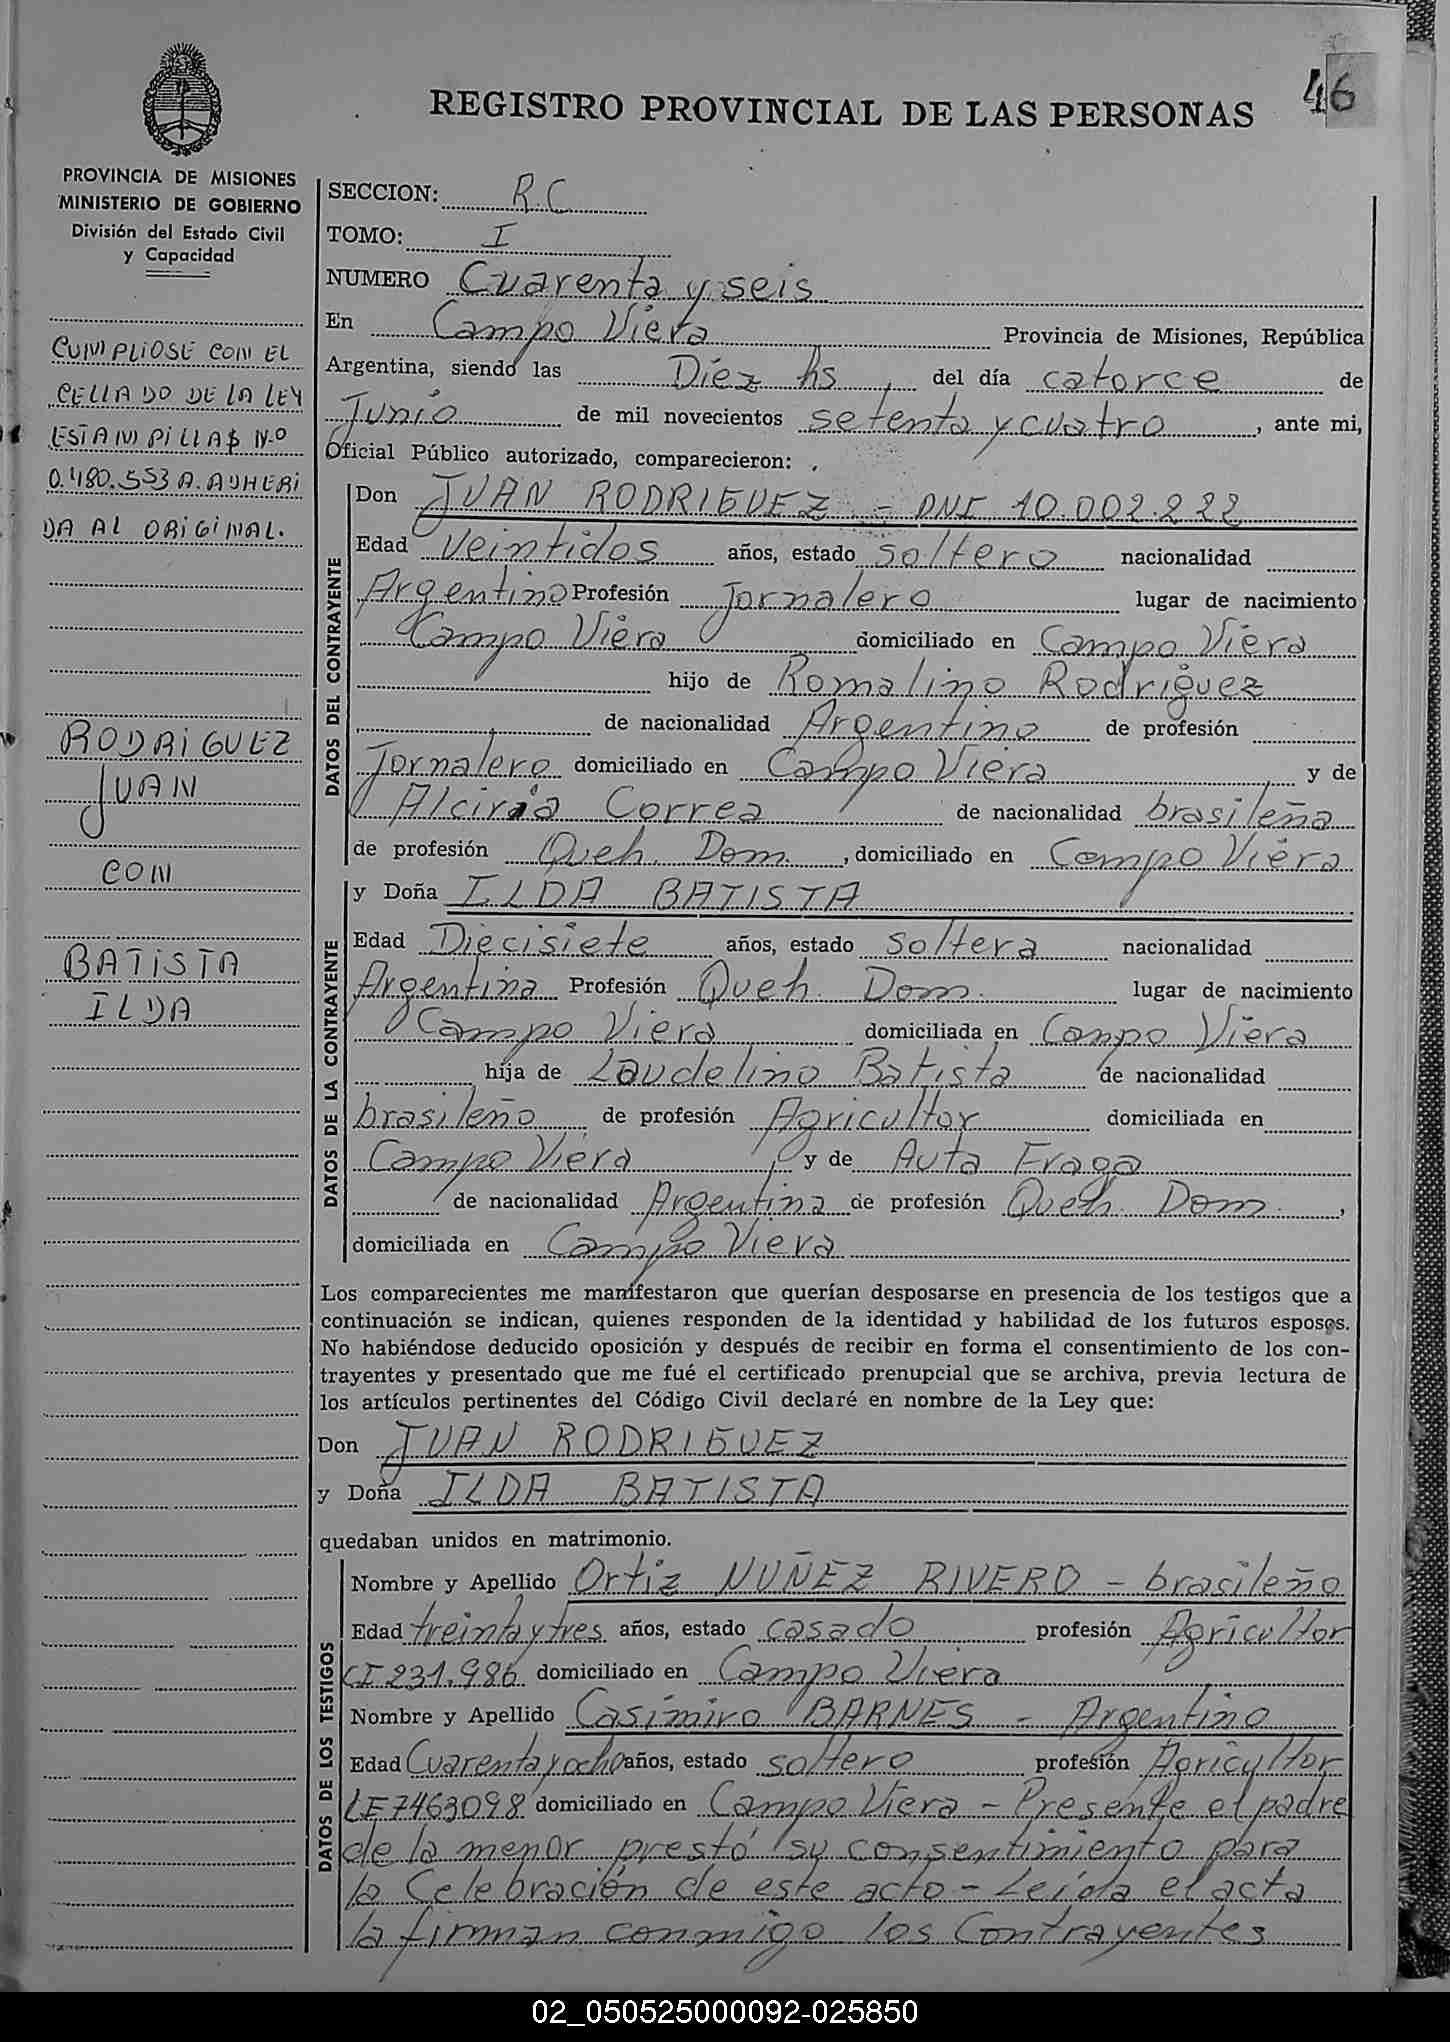 46
REGISTRO PROVINCIAL DE LAS PERSONAS
PROVINCIA DE MISIONES
MINISTERIO DE GOBIERNO
División del Estado Civil
y Capacidad
CUMPLIOSE CON EL
CELLADO DE LA LEY
ESTAMPILLAS N.o
0.480.553 A. ADHERI
DA AL ORIGINAL.
RODRIGUEZ
JUAN
CON
BATISTA
ILDA
SECCION: R.C
TOMO: I
NUMERO Cuarenta y seis
En Campo Viera Provincia de Misiones, República
Argentina, siendo las Diez hs, del día catorce de
Junio de mil novecientos setenta y cuatro, ante mi,
Oficial Público autorizado, comparecieron:
DATOS DEL CONTRAYENTE
Don JUAN RODRIGUEZ - DNI 10.002.222
Edad veintidos años, estado soltero nacionalidad
Argentino Profesión Jornalero lugar de nacimiento
Campo Viera domiciliado en Campo Viera
hijo de Romalino Rodriguez
de nacionalidad Argentino de profesión
Jornalero domiciliado en Campo Viera, y de
Alciria Correa de nacionalidad brasileña
de profesión Queh. Dom., domiciliado en Campo Viera
DATOS DE LA CONTRAYENTE
y Doña ILDA BATISTA
Edad Diecisiete años, estado soltera nacionalidad
Argentina Profesión Queh. Dom. lugar de nacimiento
Campo Viera domiciliada en Campo Viera
hija de Laudelino Batista de nacionalidad
brasileño de profesión Agricultor domiciliada en
Campo Viera, y de Auta Fraga
de nacionalidad Argentina de profesión Queh. Dom.,
domiciliada en Campo Viera
Los comparecientes me manifestaron que querían desposarse en presencia de los testigos que a
continuación se indican, quienes responden de la identidad y habilidad de los futuros esposos.
No habiéndose deducido oposición y después de recibir en forma el consentimiento de los con-
trayentes y presentado que me fué el certificado prenupcial que se archiva, previa lectura de
los artículos pertinentes del Código Civil declaré en nombre de la Ley que:
Don JUAN RODRIGUEZ
y Doña ILDA BATISTA
quedaban unidos en matrimonio.
DATOS DE LOS TESTIGOS
Nombre y Apellido Ortiz NUÑEZ RIVERO - brasileño
Edad treinta y tres años, estado casado profesión Agricultor
CI 231.986 domiciliado en Campo Viera
Nombre y Apellido Casimiro BARNES - Argentino
Edad Cuarenta y ocho años, estado soltero profesión Agricultor
LE 7463098 domiciliado en Campo Viera - Presente el padre
de la menor prestó su consentimiento para
la Celebración de este acto - Leída el acta
la firman conmigo los Contrayentes
02_050525000092-025850